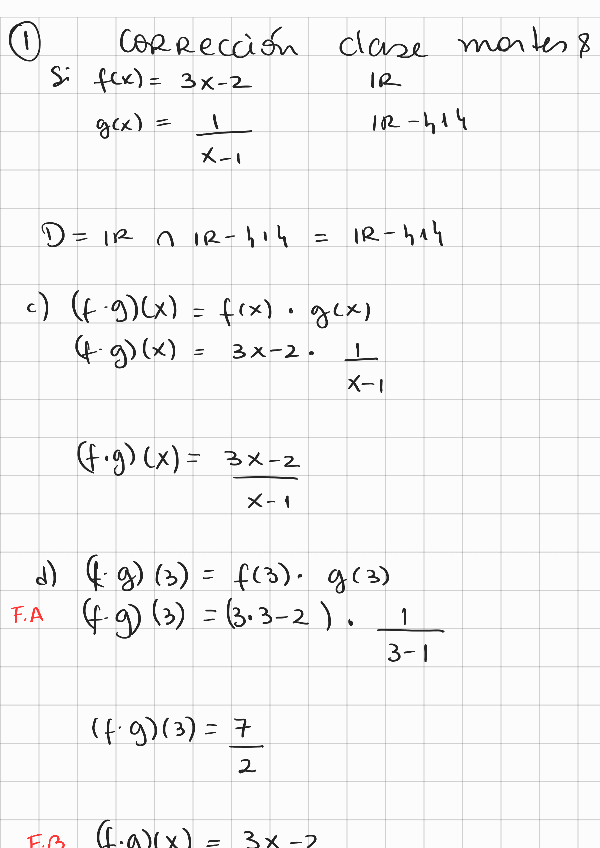 ① Corrección clase martes 8
Si f(x) = 3x-2 IR
g(x) = 1/(x-1) IR-{1}
D = IR ∩ IR-{1} = IR-{1}
c) (f·g)(x) = f(x) · g(x)
(f·g)(x) = 3x-2 · 1/(x-1)
(f·g)(x) = (3x-2)/(x-1)
d) (f·g)(3) = f(3) · g(3)
F.A (f·g)(3) = (3·3-2) · 1/(3-1)
(f·g)(3) = 7/2
F.B (f·g)(x) = 3x-2